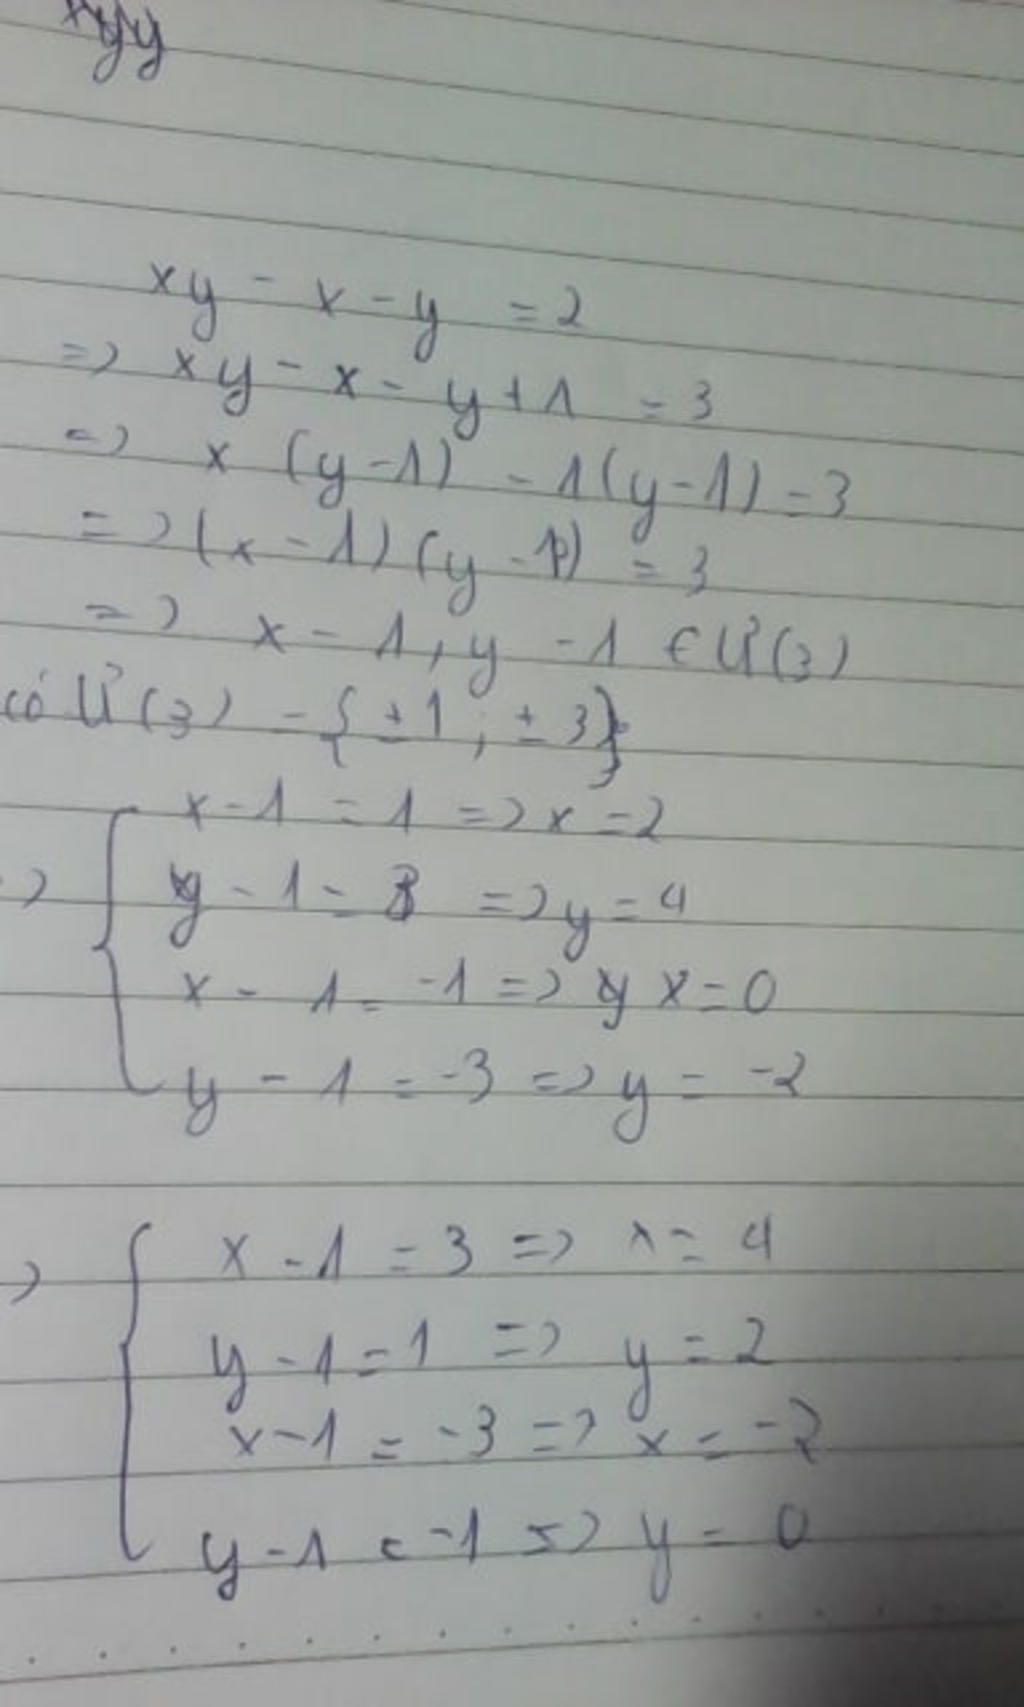 xyy
xy - x - y = 2
=> xy - x - y + 1 = 3
=> x (y - 1) - 1(y - 1) = 3
=> (x - 1) (y - 1) = 3
=> x - 1, y - 1 ∈ Ư(3)
có Ư(3) = {±1; ±3}
=> x - 1 = 1 => x = 2
y - 1 = 3 => y = 4
x - 1 = -1 => x = 0
y - 1 = -3 => y = -2
=> x - 1 = 3 => x = 4
y - 1 = 1 => y = 2
x - 1 = -3 => x = -2
y - 1 = -1 => y = 0